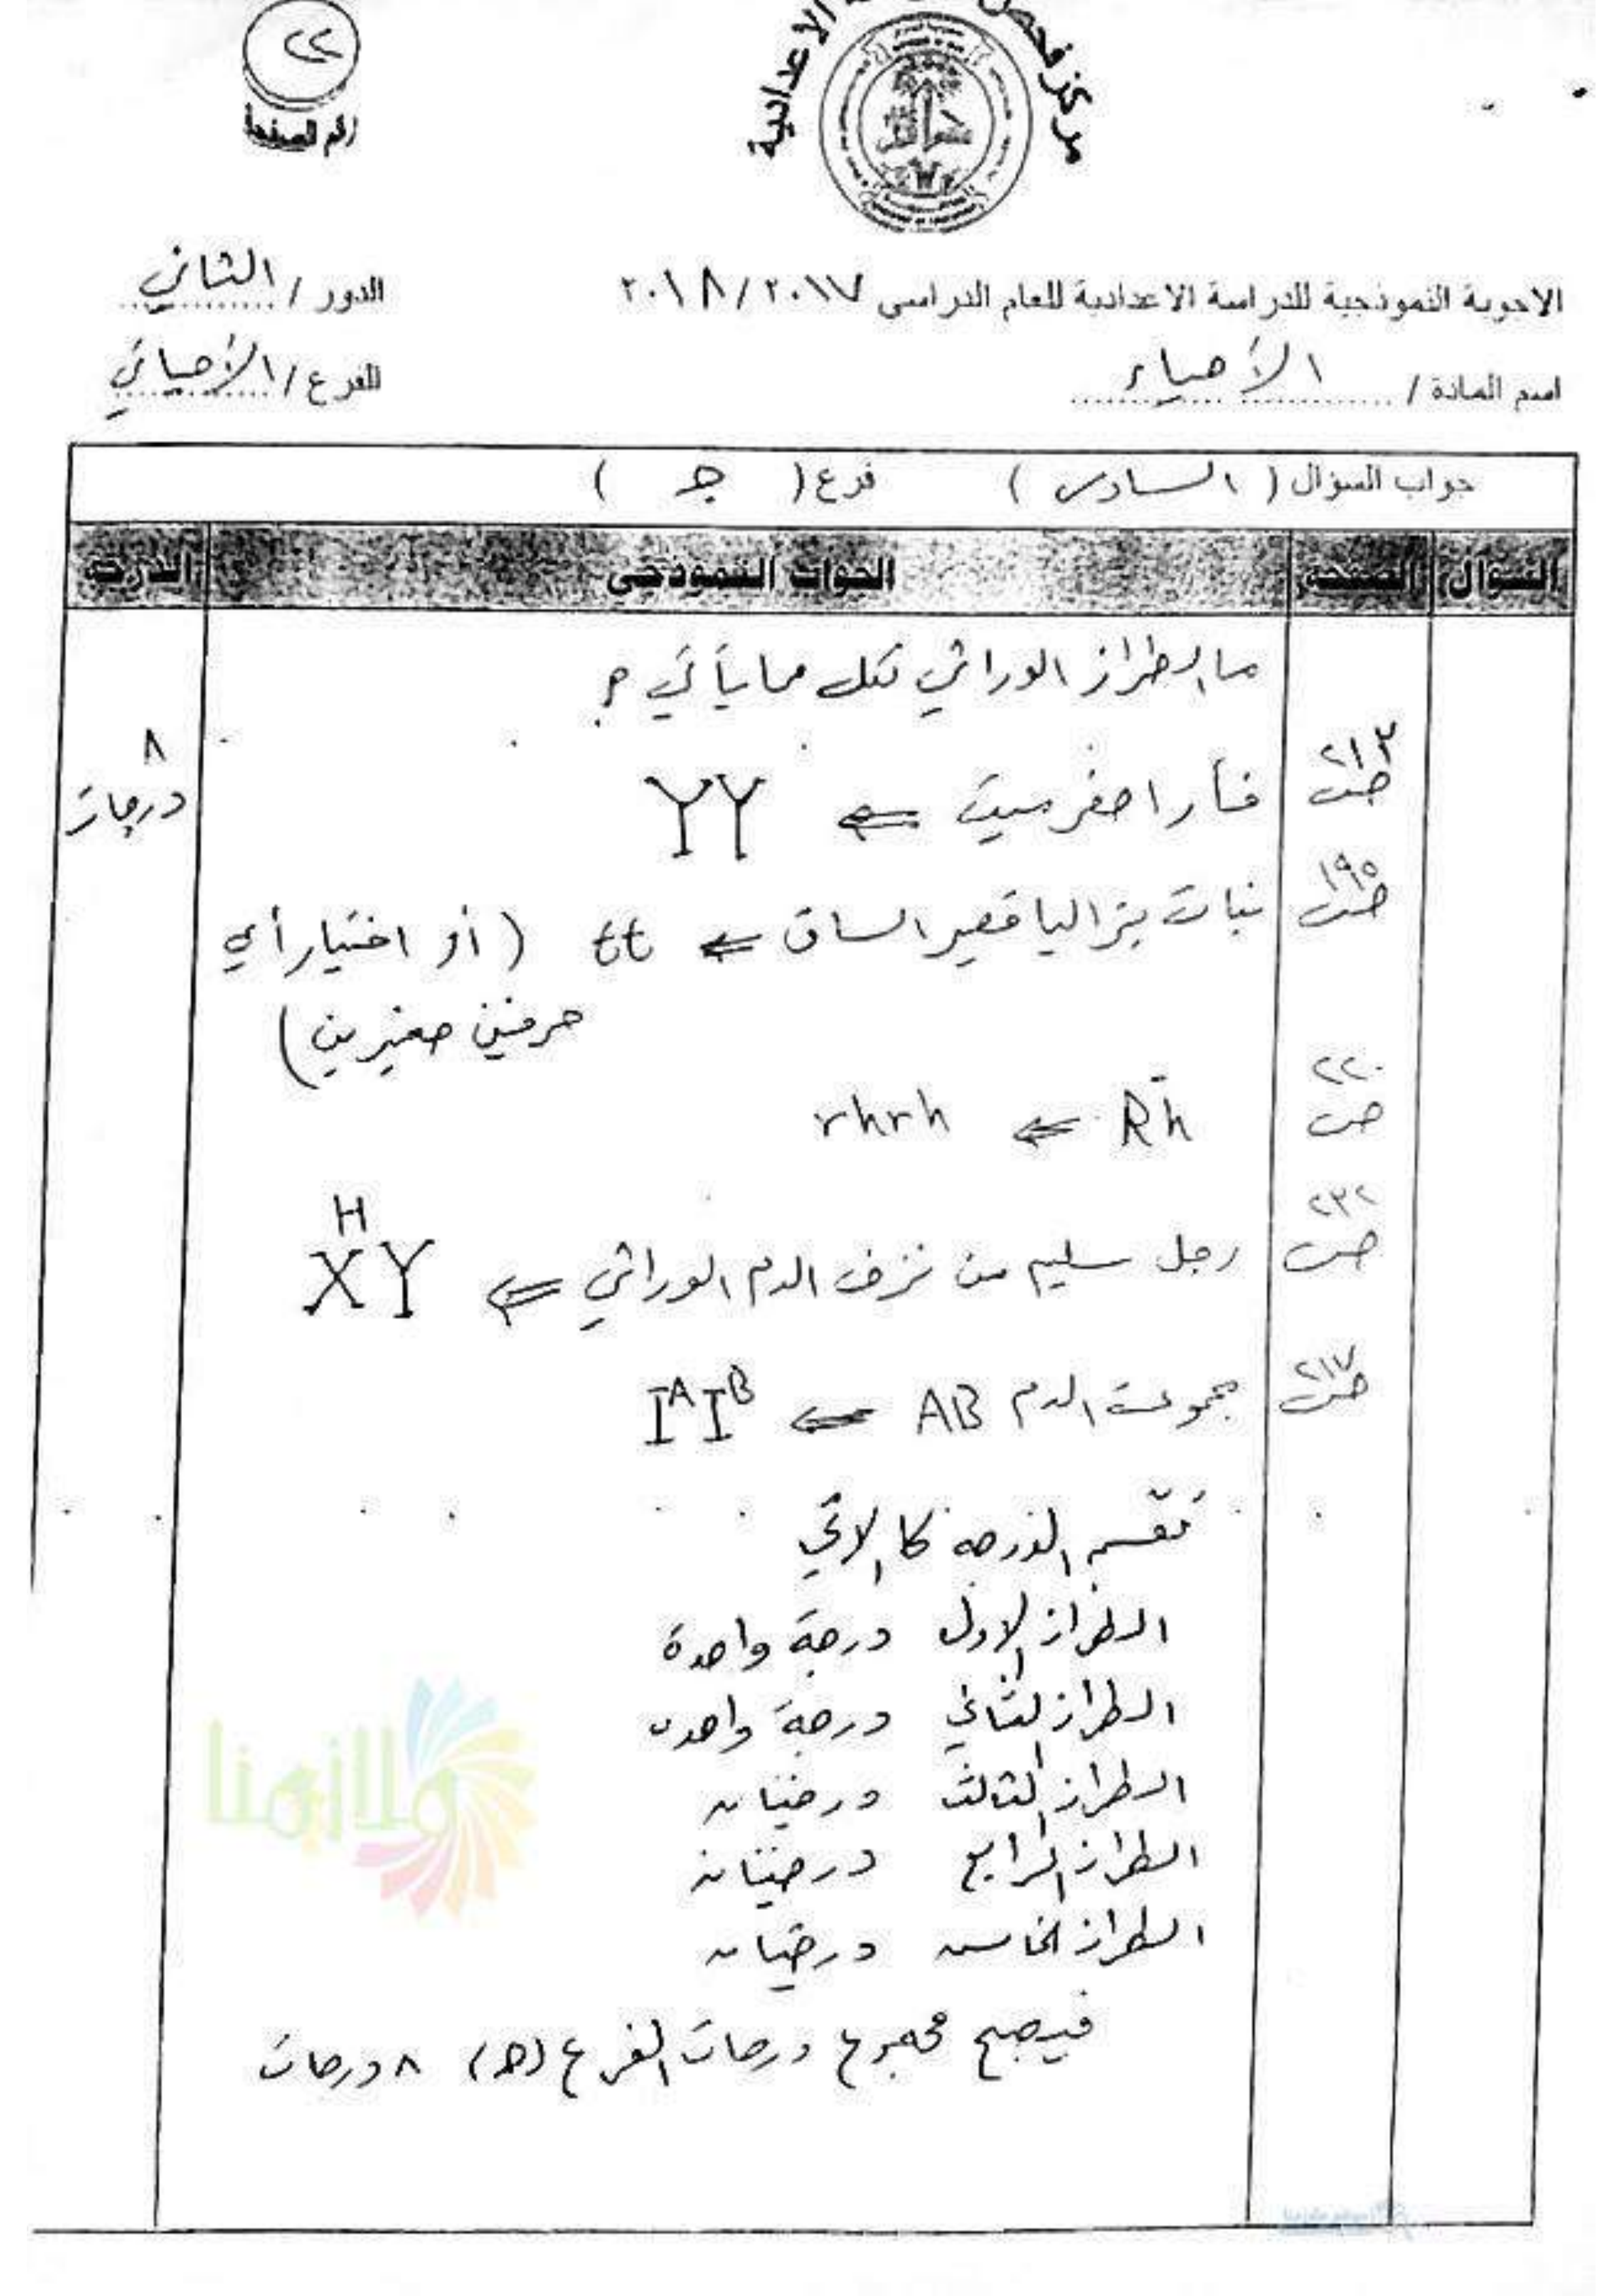 ٢٢
رقم الصفحة
مركز فحص الاعدادية
الاجوبة النموذجية للدراسة الاعدادية للعام الدراسي ٢٠١٧/٢٠١٨
الدور / الثاني
اسم المادة / الأحياء
الفرع / الأحيائي
جواب السؤال ( السادس ) فرع ( جـ )
السؤال الصفحة الجواب النموذجي الدرجة
ما الطراز الوراثي لكل مما يأتي ؟
ص ٢١٣ فأر اصفر ميت ⇐ YY ٨ درجات
ص ١٩٥ نبات بزاليا قصير الساق ⇐ tt ( أو اختيار أي
حرفين صغيرين )
ص ٢٢٠ Rh⁻ ⇐ rhrh
ص ٢٣٢ رجل سليم من نزف الدم الوراثي ⇐ XᴴY
ص ٢١٧ مجموعة الدم AB ⇐ IᴬIᴮ
تقسم الدرجة كالاتي
الطراز الاول درجة واحدة
الطراز الثاني درجة واحدة
الطراز الثالث درجتان
الطراز الرابع درجتان
الطراز الخامس درجتان
فيصبح مجموع درجات الفرع (جـ) ٨ درجات
ملازمنا